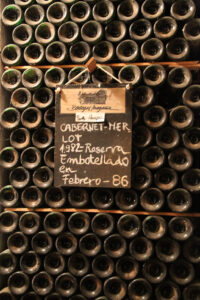 CABERNET-MER
LOT
1.982-Reserva
Embotellado
en
Febrero-86